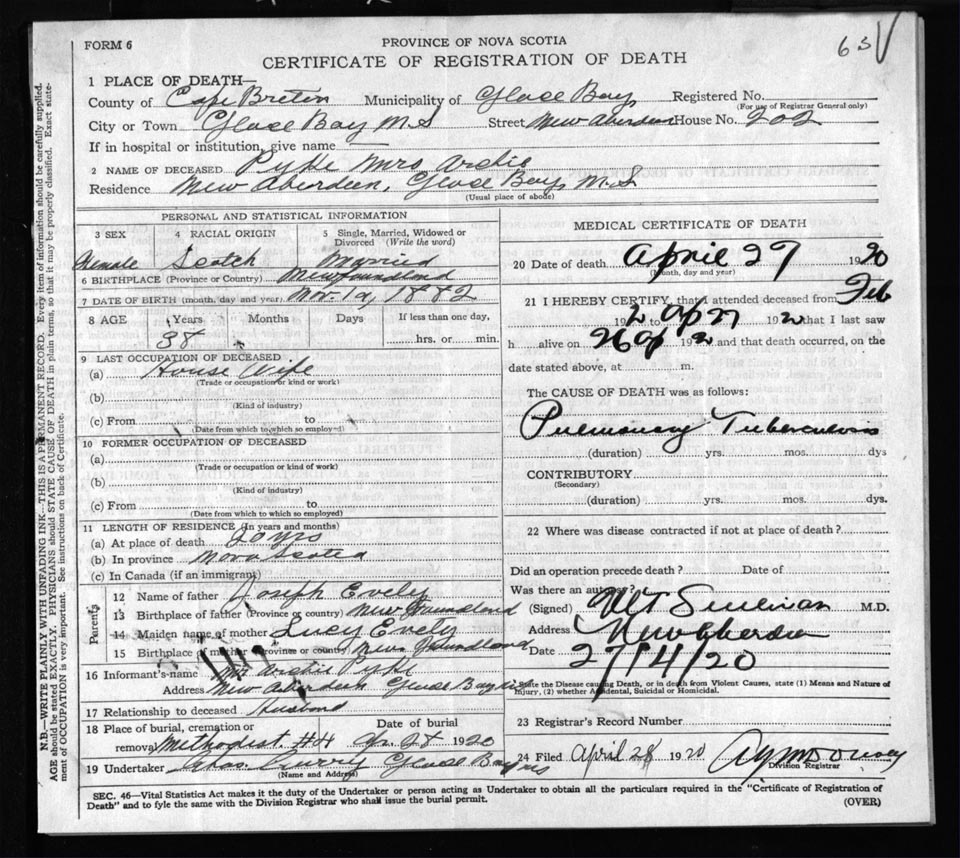 FORM 6
63
PROVINCE OF NOVA SCOTIA
CERTIFICATE OF REGISTRATION OF DEATH
1 PLACE OF DEATH—
County of Cape Breton Municipality of Glace Bay Registered No.
(For use of Registrar General only)
City or Town Glace Bay N.S Street New Aberdeen House No. 202
If in hospital or institution, give name
2 NAME OF DECEASED Pyke Mrs Archie
Residence New Aberdeen, Glace Bay, N.S
(Usual place of abode)
PERSONAL AND STATISTICAL INFORMATION
3 SEX 4 RACIAL ORIGIN 5 Single, Married, Widowed or Divorced (Write the word)
Female Scotch Married
6 BIRTHPLACE (Province or Country) Newfoundland
7 DATE OF BIRTH (month, day and year) Nov. 1882
8 AGE Years Months Days If less than one day,
38 hrs. or min.
9 LAST OCCUPATION OF DECEASED
(a) House Wife
(Trade or occupation or kind or work)
(b)
(Kind of industry)
(c) From to
(Date from which to which so employed)
10 FORMER OCCUPATION OF DECEASED
(a)
(Trade or occupation or kind of work)
(b)
(Kind of industry)
(c) From to
(Date from which to which so employed)
11 LENGTH OF RESIDENCE (In years and months)
(a) At place of death 20 yrs
(b) In province Nova Scotia
(c) In Canada (if an immigrant)
Parents
12 Name of father Joseph Evely
13 Birthplace of father (Province or country) Newfoundland
14 Maiden name of mother Lucy Evely
15 Birthplace of mother (Province or country) New Foundland
16 Informant's name Mr Archie Pyke
Address New Aberdeen Glace Bay
17 Relationship to deceased Husband
18 Place of burial, cremation or removal Date of burial
Methodist Ap. 28 1920
19 Undertaker Chas. Curry Glace Bay NS
(Name and Address)
MEDICAL CERTIFICATE OF DEATH
20 Date of death April 27 1920
(Month, day and year)
21 I HEREBY CERTIFY, that I attended deceased from Feb
192 to Ap 27 192 that I last saw
h alive on 26 Ap 192 and that death occurred, on the
date stated above, at m.
The CAUSE OF DEATH was as follows:
Pulmonary Tuberculosis
(duration) yrs. mos. dys
CONTRIBUTORY
(Secondary)
(duration) yrs. mos. dys.
22 Where was disease contracted if not at place of death?
Did an operation precede death? Date of
Was there an autopsy?
(Signed) Sullivan M.D.
Address New Aberdeen
Date 27/4/20
State the Disease causing Death, or in death from Violent Causes, state (1) Means and Nature of
Injury, (2) whether Accidental, Suicidal or Homicidal.
23 Registrar's Record Number
24 Filed April 28 1920
Division Registrar
SEC. 46—Vital Statistics Act makes it the duty of the Undertaker or person acting as Undertaker to obtain all the particulars required in the "Certificate of Registration of
Death" and to fyle the same with the Division Registrar who shall issue the burial permit.
(OVER)
N.B.—WRITE PLAINLY WITH UNFADING INK—THIS IS A PERMANENT RECORD. Every item of information should be carefully supplied.
AGE should be stated EXACTLY. PHYSICIANS should STATE CAUSE OF DEATH in plain terms, so that it may be properly classified. Exact state-
ment of OCCUPATION is very important. See instructions on back of Certificate.